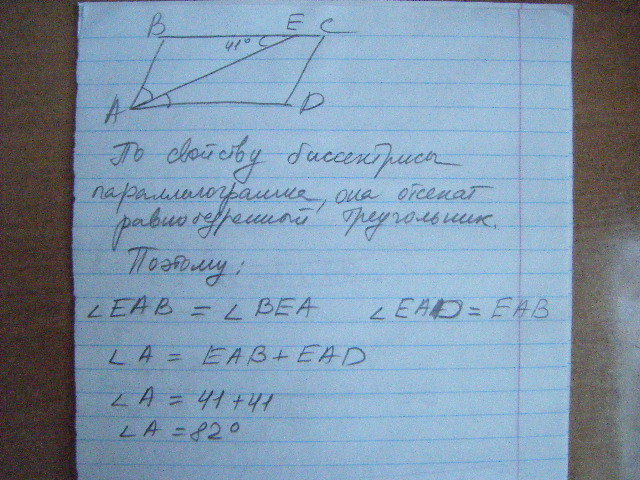 B E C
41°
A D
По свойству биссектрисы
параллелограмма, она отсекат
равнобедренный треугольник.
Поэтому:
∠EAB = ∠BEA ∠EAD = EAB
∠A = EAB + EAD
∠A = 41 + 41
∠A = 82°